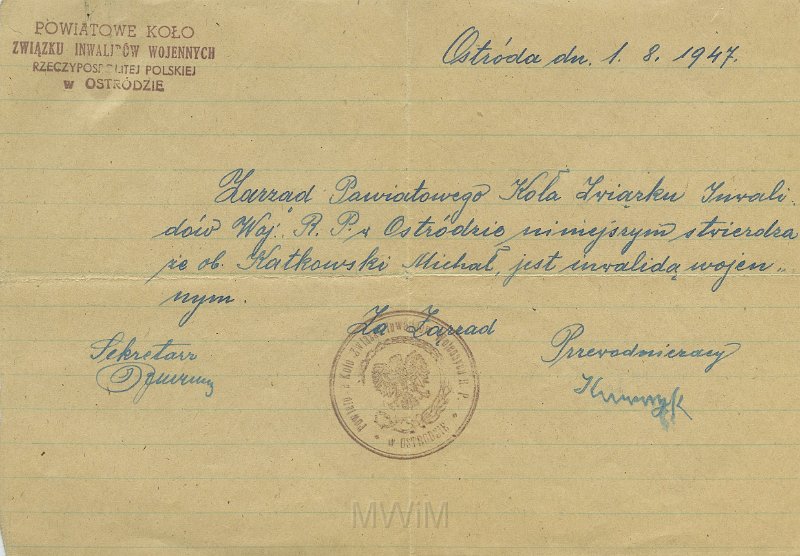 POWIATOWE KOŁO
ZWIĄZKU INWALIDÓW WOJENNYCH
RZECZYPOSPOLITEJ POLSKIEJ
w OSTRÓDZIE
Ostróda dn. 1. 8. 1947.
Zarząd Powiatowego Koła Związku Inwali-
dów Woj. R. P. w Ostródzie niniejszym stwierdza
że ob. Katkowski Michał, jest inwalidą wojen„
nym.
Za Zarząd
Sekretarz
Przewodniczący
Koło
R. P.
w OSTRÓDZIE
MWiM